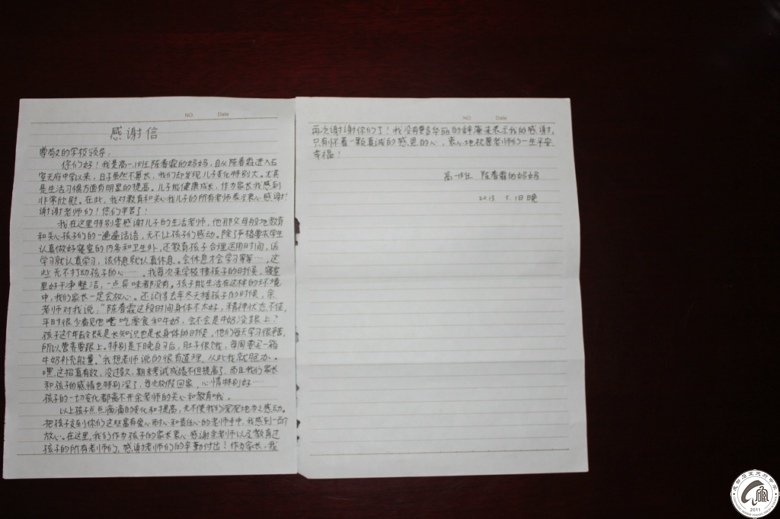 NO Date
感谢信
尊敬的学校领导:
你们好!我是高一(8)班陈春霖的妈妈,自从陈春霖进入石
室天府中学以来,日子虽然不算长,我们却发现儿子变化特别大。尤其
是生活习惯方面有明显的提高。儿子能健康成长,作为家长我感到
非常欣慰。在此,我对教育和关心我儿子的所有老师表示衷心感谢!
谢谢老师们!你们辛苦了!
我在这里特别要感谢儿子的生活老师,他那父母般地教育
和关心孩子们的一滴滴话语,无不让孩子们感动。除了严格要求学生
认真做好寝室的内务和卫生外,还教育孩子合理运用时间,该
学习就认真学习,该休息就认真休息。会休息才会学习等等……,这
些无不打动孩子的心……。我每次来学校接孩子的时候,寝室
里好干净整洁,一点异味都没有。孩子能生活在这样的环境
中,我们家长一定会放心。还记得去年冬天接孩子的时候,余
老师对我说,“陈春霖这段时间身体不太好,精神状态不佳,
平时很少看见他吃零食和牛奶,会不会是牛奶没跟上?
孩子这个年龄既是长知识又是长身体的时候,他们每天学习很辛苦,
所以营养要跟上。特别是下晚自习后,肚子很饿,每周带一箱
牛奶补充能量。”我想老师说的很有道理,从此我就照办。
嘿,这招真有效,没过多久,期末考试成绩不但提高了,而且我们家长
和孩子的感情也特别深了,每次放假回家,心情特别好……
孩子的一切变化都离不开余老师的关心和教育哦。
以上孩子点点滴滴的变化和提高,无不使我们深深地为之感动。
把孩子交到你们这些富有爱心、耐心和责任心的老师手中,我感到一百个
放心。在这里,我们作为孩子的家长衷心感谢余老师以及教育过
孩子的所有老师们,感谢老师们的辛勤付出!作为家长,我
NO Date
再次谢谢你们了!我没有更多华丽的辞藻来表示我的感谢,
只有怀着一颗真诚的感恩的心,衷心地祝愿老师们一生平安
幸福!
高一(8)班 陈春霖的妈妈
2013 5.1日晚
2011